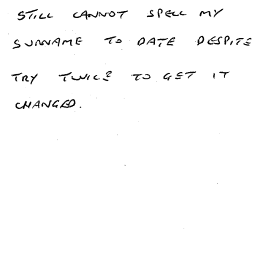 STILL CANNOT SPELL MY
SURNAME TO DATE DESPITE
TRY TWICE TO GET IT
CHANGED.